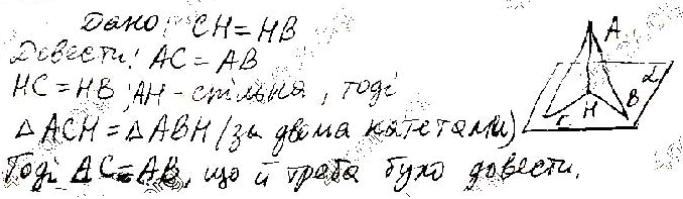 Дано: CH = HB
Довести: AC = AB
HC = HB; AH - спільна, тоді
△ ACH = △ ABH (за двома катетами)
Тоді AC = AB, що й треба було довести.
A
α
C
H
B